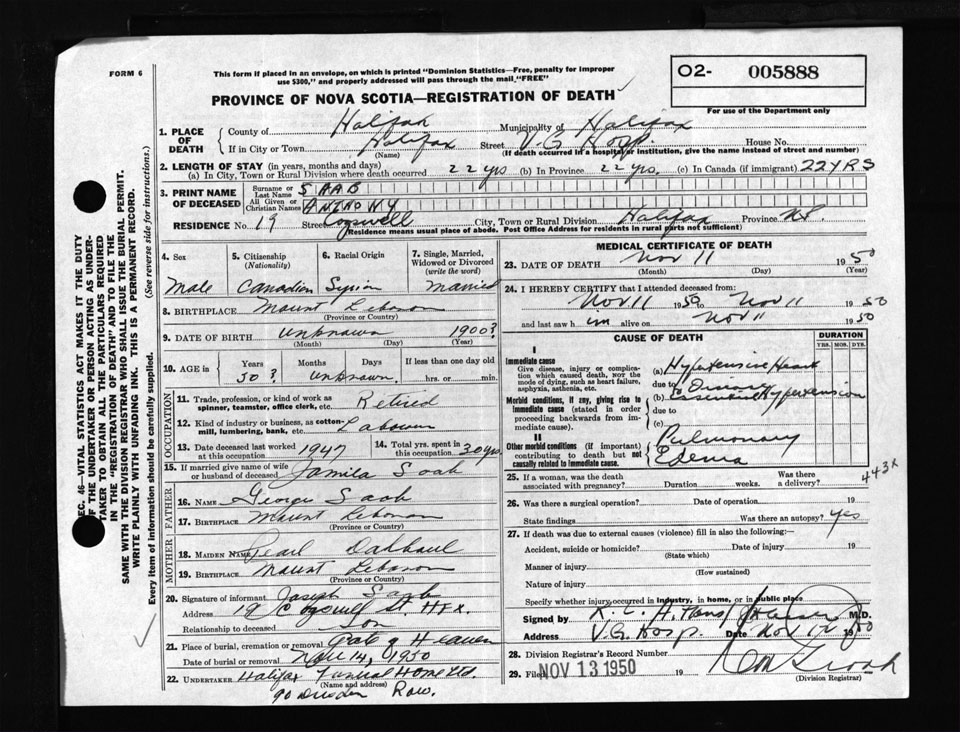 FORM 6
This form if placed in an envelope, on which is printed "Dominion Statistics—Free, penalty for improper
use $300," and properly addressed will pass through the mail "FREE"
O2- 005888
For use of the Department only
PROVINCE OF NOVA SCOTIA—REGISTRATION OF DEATH
1. PLACE OF DEATH { County of Halifax Municipality of Halifax
If in City or Town Halifax (Name) Street V.G. Hosp. House No.
(If death occurred in a hospital or institution, give the name instead of street and number)
2. LENGTH OF STAY (in years, months and days)
(a) In City, Town or Rural Division where death occurred 22 yrs (b) In Province 22 yrs. (c) In Canada (if immigrant) 22 YRS
3. PRINT NAME OF DECEASED { Surname or Last Name SAAB
All Given or Christian Names ANTHONY
RESIDENCE No. 19 Street Cogswell City, Town or Rural Division Halifax Province N.S.
(Residence means usual place of abode. Post Office Address for residents in rural parts not sufficient)
4. Sex 5. Citizenship (Nationality) 6. Racial Origin 7. Single, Married, Widowed or Divorced (write the word)
Male Canadian Syrian Married
8. BIRTHPLACE Mount Lebanon
(Province or Country)
9. DATE OF BIRTH unknown 1900?
(Month) (Day) (Year)
10. AGE in { Years Months Days If less than one day old
50? unknown. hrs. or min.
OCCUPATION
11. Trade, profession, or kind of work as spinner, teamster, office clerk, etc. Retired
12. Kind of industry or business, as cotton-mill, lumbering, bank, etc. Labourer
13. Date deceased last worked at this occupation 1947 14. Total yrs. spent in this occupation 30 yrs.
15. If married give name of wife or husband of deceased Jamila Saab
FATHER
16. NAME George Saab
17. BIRTHPLACE Mount Lebanon
(Province or Country)
MOTHER
18. MAIDEN NAME Pearl Dahbaul
19. BIRTHPLACE Mount Lebanon
(Province or Country)
20. Signature of informant Joseph Saab
Address 19 Cogswell St. Hfx.
Relationship to deceased Son
21. Place of burial, cremation or removal Gate of Heaven
Date of burial or removal Nov 14, 1950
22. UNDERTAKER Halifax Funeral Home Ltd.
(Name and address)
90 Dresden Row.
MEDICAL CERTIFICATE OF DEATH
23. DATE OF DEATH Nov 11 1950
(Month) (Day) (Year)
24. I HEREBY CERTIFY that I attended deceased from:
Nov 11 1950 to Nov 11 1950
and last saw h im alive on Nov 11 1950
CAUSE OF DEATH DURATION
YRS. MOS. DYS.
I
Immediate cause
Give disease, injury or complication which caused death, not the mode of dying, such as heart failure, asphyxia, asthenia, etc.
(a) Hypertensive Heart
due to Disease
Morbid conditions, if any, giving rise to immediate cause (stated in order proceeding backwards from immediate cause).
(b) Essential Hypertension
due to
(c)
II
Other morbid conditions (if important) contributing to death but not causally related to immediate cause.
Pulmonary
Edema
443x
25. If a woman, was the death associated with pregnancy? Duration weeks. Was there a delivery?
26. Was there a surgical operation? Date of operation 19
State findings Was there an autopsy? Yes
27. If death was due to external causes (violence) fill in also the following:—
Accident, suicide or homicide? Date of injury 19
(State which)
Manner of injury
(How sustained)
Nature of injury
Specify whether injury occurred in industry, in home, or in public place
Signed by M.D.
Address V.G. Hosp. Date Nov 1950
28. Division Registrar's Record Number
29. Filed NOV 13 1950 19
(Division Registrar)
SEC. 46—VITAL STATISTICS ACT MAKES IT THE DUTY
OF THE UNDERTAKER OR PERSON ACTING AS UNDERTAKER TO OBTAIN ALL THE PARTICULARS REQUIRED
IN THE "REGISTRATION OF DEATH" AND TO FILE THE
SAME WITH THE DIVISION REGISTRAR WHO SHALL ISSUE THE BURIAL PERMIT.
WRITE PLAINLY WITH UNFADING INK. THIS IS A PERMANENT RECORD.
Every item of information should be carefully supplied. (See reverse side for instructions.)